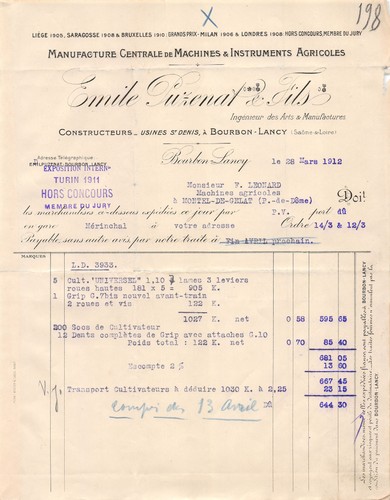 198
LIÉGE 1905, SARAGOSSE 1908 & BRUXELLES 1910: GRANDS PRIX - MILAN 1906 & LONDRES 1908: HORS CONCOURS, MEMBRE DU JURY
MANUFACTURE CENTRALE DE MACHINES & INSTRUMENTS AGRICOLES
Emile Puzenat & Fils
Ingénieur des Arts & Manufactures
CONSTRUCTEURS _ USINES ST DENIS, À BOURBON-LANCY (Saône-&-Loire)
Adresse Télégraphique
EMILE PUZENAT-BOURBON-LANCY
EXPOSITION INTERN
TURIN 1911
HORS CONCOURS
MEMBRE DU JURY
Bourbon Lancy, le 28 Mars 1912
Monsieur F. LEONARD
Machines agricoles
à MONTEL-DE-GELAT (P.-de-Dôme) Doit
les marchandises ci-dessous expédiées ce jour par P.V. port dû
en gare Hérinchal à votre adresse Ordre 14/3 & 12/3
Payable, sans autre avis, par notre traite à Fin AVRIL prochain.
MARQUES
L.D. 3933.
5 Cult. "UNIVERSEL" 1.10 7 lames 3 leviers
roues hautes 181 x 5 = 905 K.
1 Grip C.7bis nouvel avant-train
2 roues et vis 122 K.
1027 K. net 0 58 595 65
200 Socs de Cultivateur
12 Dents complètes de Grip avec attaches C.10
Poids total : 122 K. net 0 70 85 40
681 05
Escompte 2 % 13 60
667 45
V. g. Transport Cultivateurs à déduire 1030 K à 2,25 23 15
644 30
compris des 13 Avril